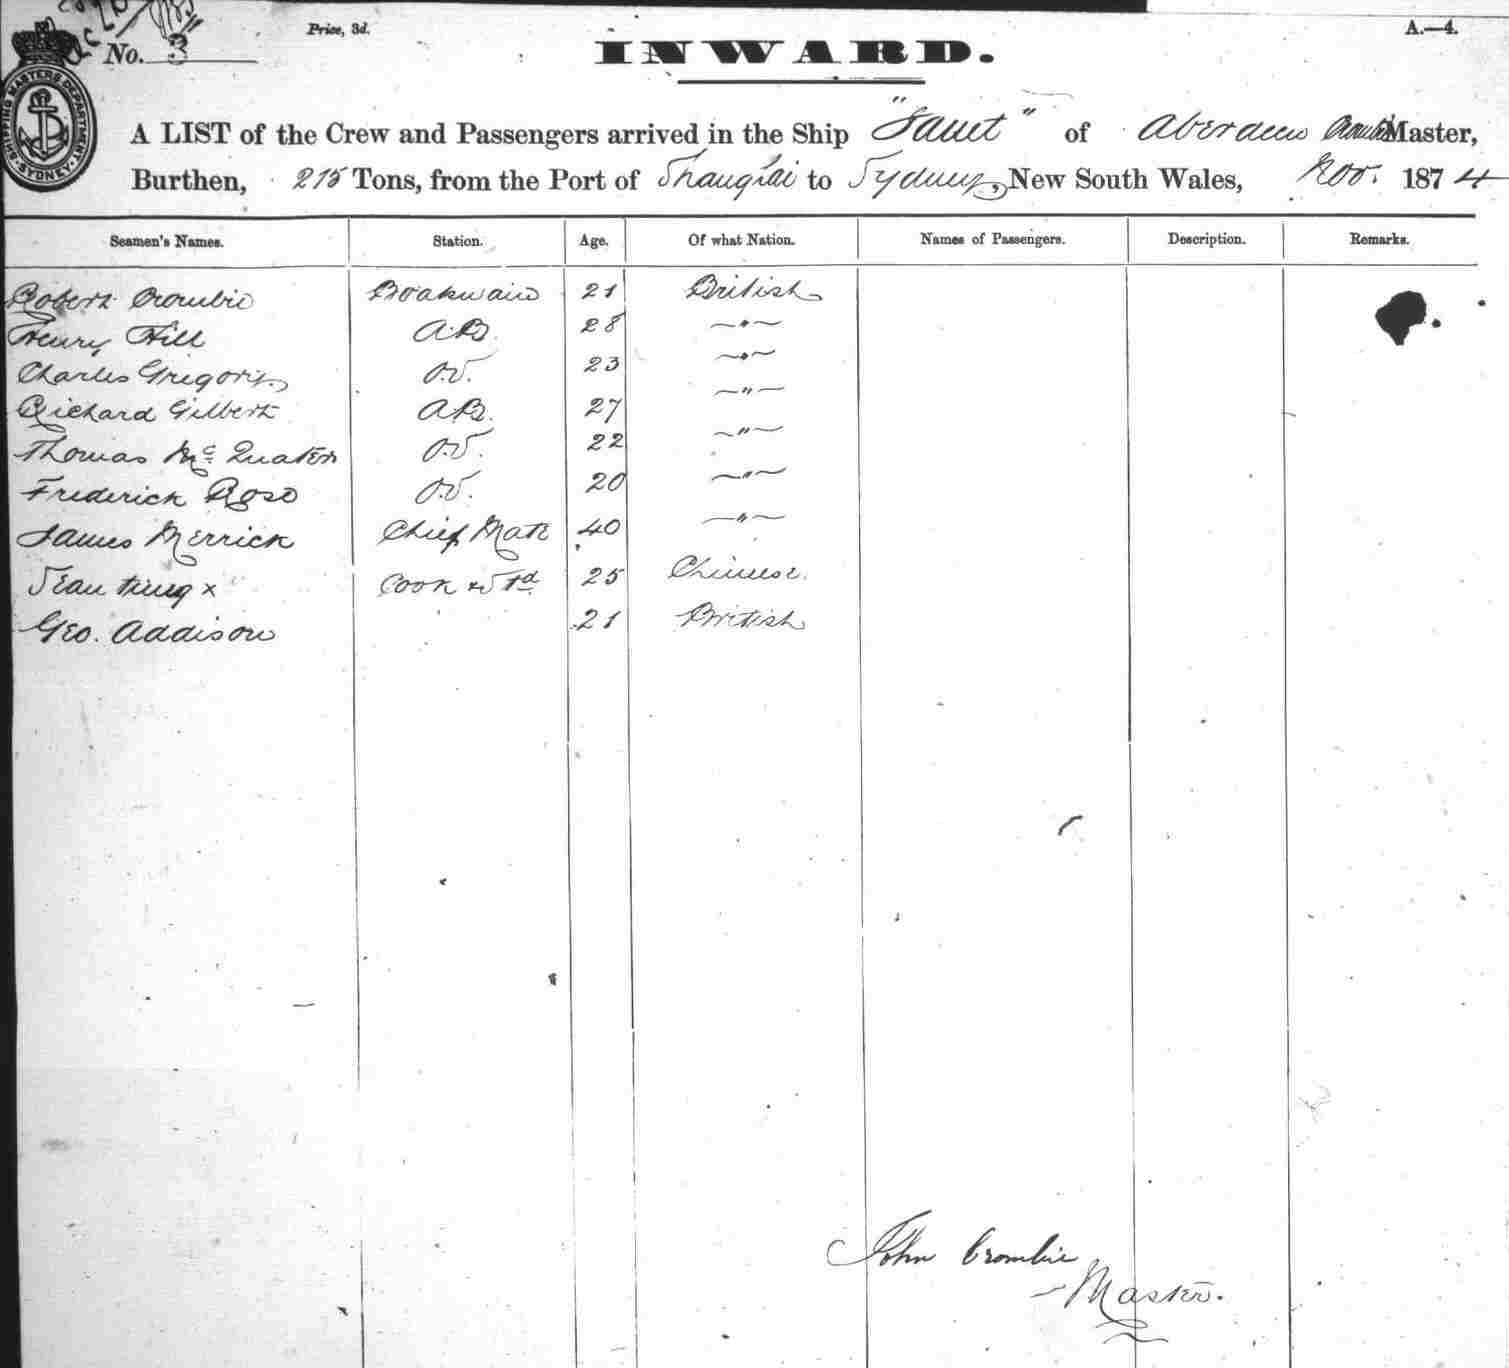 No. 3
Price, 3d.
A.—4.
INWARD.
SHIPPING MASTERS DEPARTMENT SYDNEY
A LIST of the Crew and Passengers arrived in the Ship "Janet" of Aberdeen Crombie Master,
Burthen, 215 Tons, from the Port of Shanghai to Sydney, New South Wales, Nov. 1874
Seamen's Names. Station. Age. Of what Nation. Names of Passengers. Description. Remarks.
Robert Crombie Boatswain 21 British
Henry Hill A.B. 28 — " —
Charles Gregory O.S. 23 — " —
Richard Gilbert A.B. 27 — " —
Thomas McQuaten O.S. 22 — " —
Frederick Rose O.S. 20 — " —
James Merrick Chief Mate 40 — " —
x Cook & Std 25 Chinese.
Geo. Addison 21 British
John Crombie
Master.